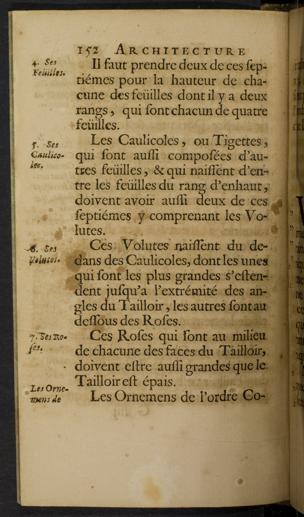 152 ARCHITECTURE
4. Ses
Feüilles.
Il faut prendre deux de ces sep-
tiémes pour la hauteur de cha-
cune des feüilles dont il y a deux
rangs, qui sont chacun de quatre
feüilles.
5. Ses
Caulico-
les.
Les Caulicoles, ou Tigettes,
qui sont aussi composées d'au-
tres feuilles, & qui naissent d'en-
tre les feüilles du rang d'enhaut,
doivent avoir aussi deux de ces
septiémes y comprenant les Vo-
lutes.
6. Ses
Volutes.
Ces Volutes naissent du de-
dans des Caulicoles, dont les unes
qui sont les plus grandes s'esten-
dent jusqu'a l'extrémité des an-
gles du Tailloir, les autres sont au
dessous des Roses.
7. Ses Ro-
ses.
Ces Roses qui sont au milieu
de chacune des faces du Tailloir,
doivent estre aussi grandes que le
Tailloir est épais.
Les Orne-
mens de
Les Ornemens de l'ordre Co-